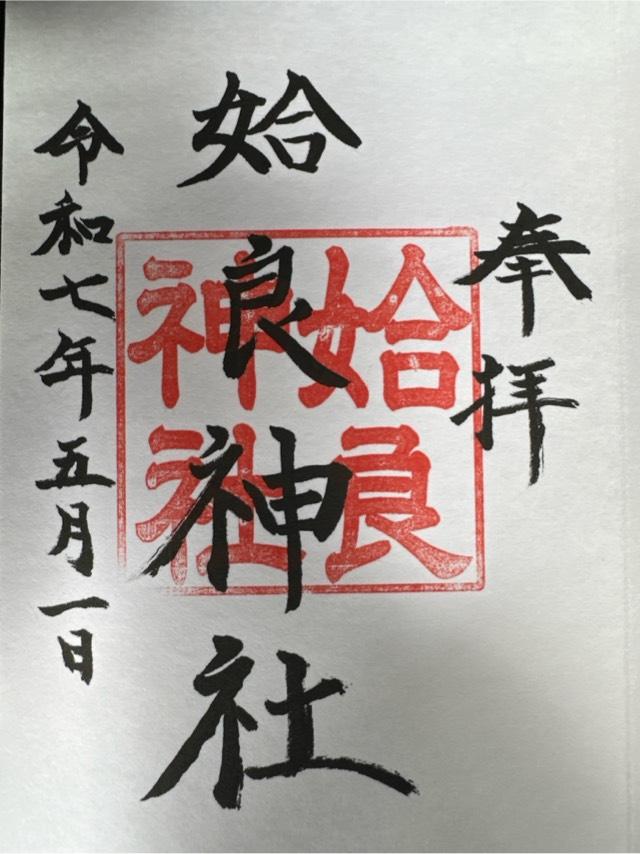 奉拝
姶良神社
姶良
神社
令和七年五月一日